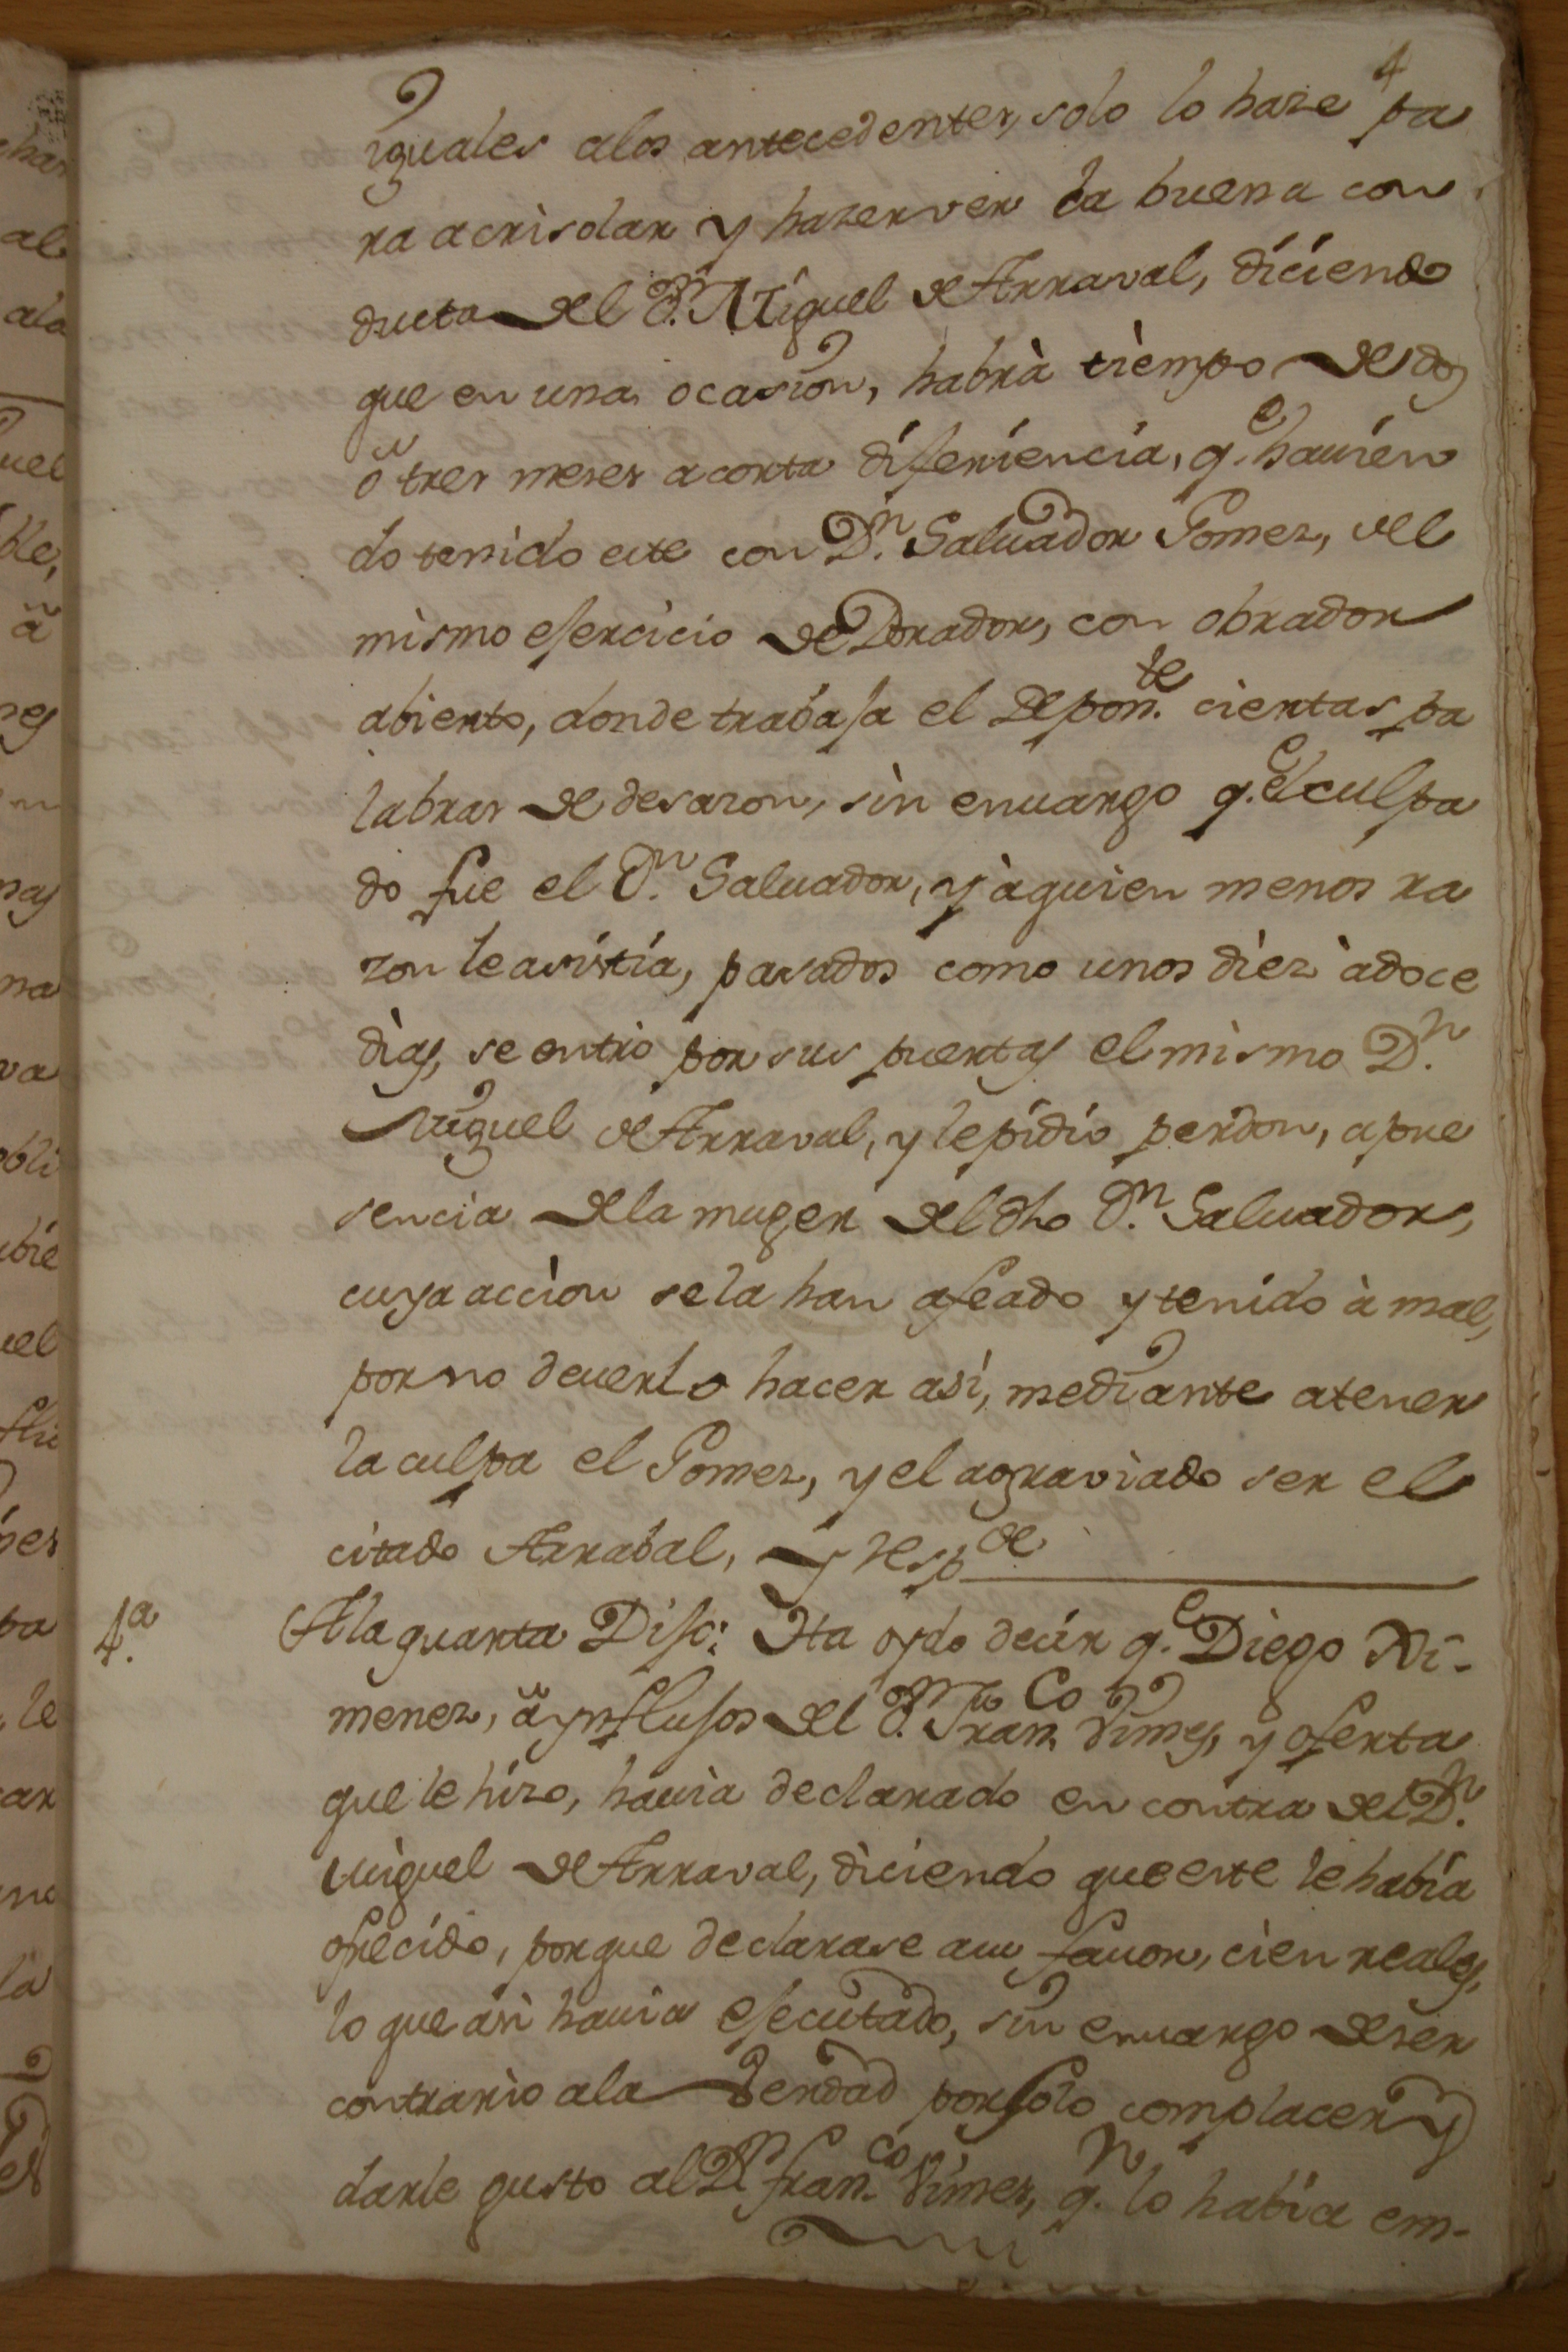 4
iguales alos antecedentes, solo lo haze pa
ra acrisolar y hazer ver la buena con
ducta del Dn. Miguel de Arraval, diciendo
que en una ocasion, habrà tiempo de dos
ô tres meses a corta diferiencia, qe. havien
do tenido este con Dn. Salvador Gomez, del
mismo ejercicio de Dorador, con obrador
abierto, donde trabaja el Deponte. ciertas pa
labras de desazon, sin envargo qe. el culpa
do fue el Dn. Salvador, y à quien menos ra
zon le asistia, pasados como unos diez à doce
dias, se entrò por sus puertas el mismo Dn.
Miguel de Arraval, y le pidiò perdon, a pre
sencia dela muger del dho Dn. Salvador,
cuya acciòn se la han afeado y tenido à mal,
por no deverlo hacer asi, mediante a tener
la culpa el Gomez, y el agraviado ser el
citado Arrabal, y respde.
4a. Ala quarta Dijo: Ha oydo decir qe. Diego Xi-
menez, â ynflujos del Dn. Franco. Vimes, y oferta
que le hizo, havia declarado en contra del Dn.
Miguel de Arraval, diciendo que este le habia
ofrecido, porque declarase a su favor, cien reales,
lo que asi havia ejecutado, sin envargo de ser
contrario ala Verdad por solo complacer y
darle gusto al Dn. Franco. Vimes, qn. lo habia em-